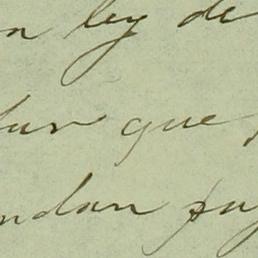 n ley de
lar que
ndan pu